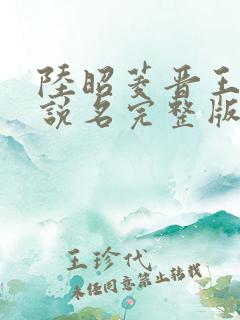 陸昭菱晋王
說名完整版
王珍代
未任同意禁止转载